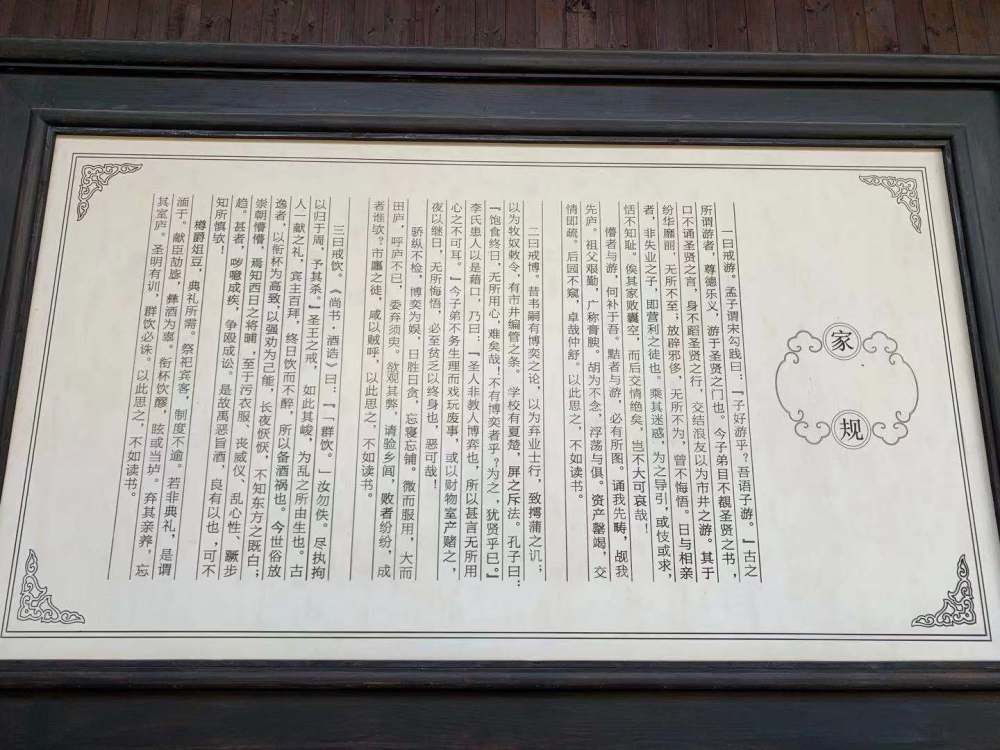 家
规
一曰戒游。孟子谓宋勾践曰：『子好游乎？吾语子游。』古之
所谓游者，尊德乐义，游于圣贤之门也。今子弟目不觏圣贤之书，
口不诵圣贤之言，身不蹈圣贤之行，交结浪友以为市井之游。其于
纷华靡丽，无所不至；放辟邪侈，无所不为，曾不悔悟。日与相亲
者，非失业之子，即营利之徒也。乘其迷惑，为之导引，或忮或求，
恬不知耻。俟其家败囊空，而后交情绝矣，岂不大可哀哉！
懵者与游，何补于吾。黠者与游，必有所图。诵我先畴，觇我
先庐。祖父艰勤，广称膏腴。胡为不念，浮荡与俱。资产罄竭，交
情即疏。后园不窥，卓哉仲舒。以此思之，不如读书。
二曰戒博。昔韦嗣有博奕之论，以为弃业士行，致摴蒲之讥；
以为牧奴敕令，有市井编管之条。学校有夏楚，屏之斥法。孔子曰：
『饱食终日，无所用心，难矣哉！不有博奕者乎？为之，犹贤乎已。』
李氏患人以是藉口，乃曰：『圣人非教人博弈也，所以甚言无所用
心之不可耳。』今子弟不务生理而戏玩废事，或以财物室产赌之，
夜以继日，无所悔悟，必至贫乏以终身也，恶可哉！
骄纵不检，博奕为娱，日胜日贪，忘寝忘铺。微而服用，大而
田庐，呼庐不已，委弃须臾。欲观其弊，请验乡闾，败者纷纷，成
者谁欤？市廛之徒，咸以贼呼，以此思之，不如读书。
三曰戒饮。《尚书·酒诰》曰：『「群饮。」汝勿佚。尽执拘
以归于周，予其杀。』圣王之戒，如此其峻，为乱之所由生也。古
人一献之礼，宾主百拜，终日饮而不醉，所以备酒祸也。今世俗放
逸者，以衔杯为高致，以强劝为己能，长夜恹恹，不知东方之既白；
崇朝懵懵，焉知西日之将晡，至于污衣服、丧威仪、乱心性、蹶步
趋。甚者，哕噫成疾，争殴成讼。是故禹恶旨酒，良有以也，可不
知所慎欤！
樽爵俎豆，典礼所需。祭祀宾客，制度不逾。若非典礼，是谓
湎于。献臣劼毖，彝酒为辜。衔杯饮醪，眩或当垆。弃其亲养，忘
其室庐。圣明有训，群饮必诛。以此思之，不如读书。